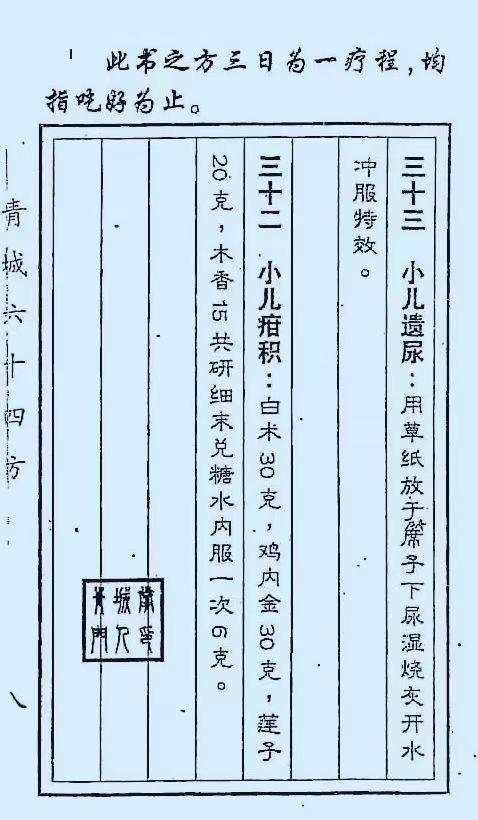 此书之方三日为一疗程，均
指吃好为止。
三十三 小儿遗尿：用草纸放于蓆子下尿湿烧灰开水
冲服特效。
三十二 小儿疳积：白术30克，鸡内金30克，莲子
20克，木香15共研细末兑糖水内服一次6克。
青城六十四方
八